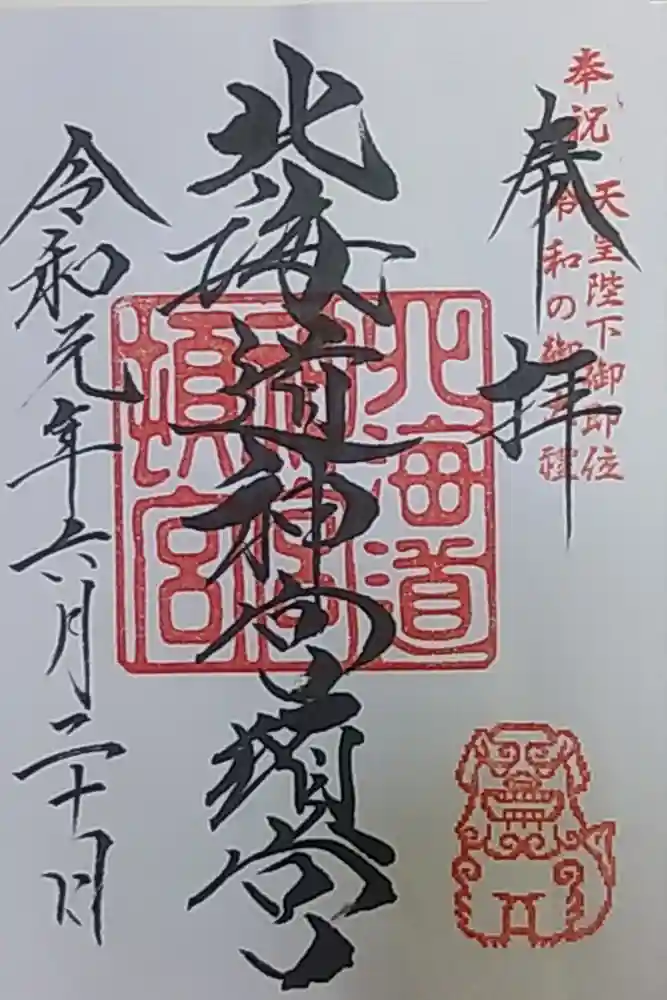 奉祝 天皇陛下御即位
令和の御大礼
奉拝
北海道神宮頓宮
北海道
神宮
頓宮
令和元年六月二十日